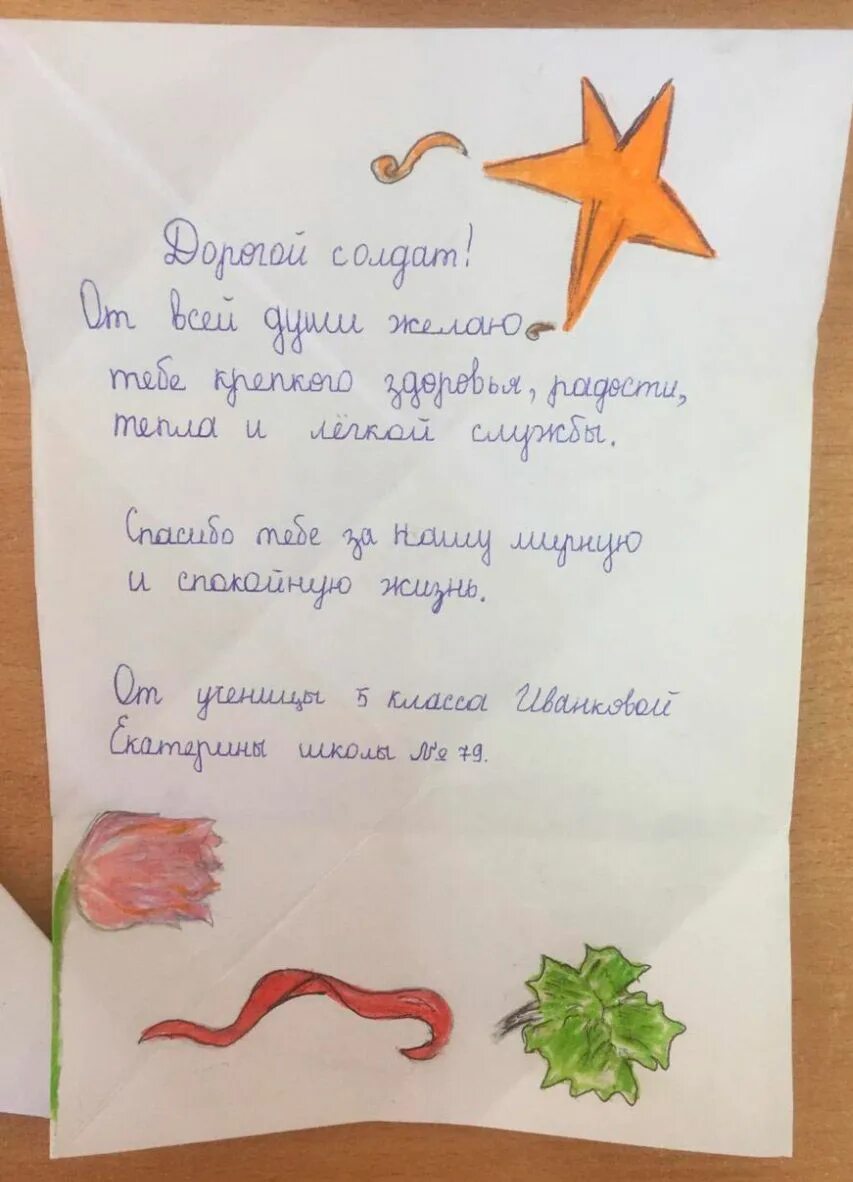 Дорогой солдат!
От всей души желаю
тебе крепкого здоровья, радости,
тепла и лёгкой службы.
Спасибо тебе за нашу мирную
и спокойную жизнь.
От ученицы 5 класса Иванковой
Екатерины школы № 79.